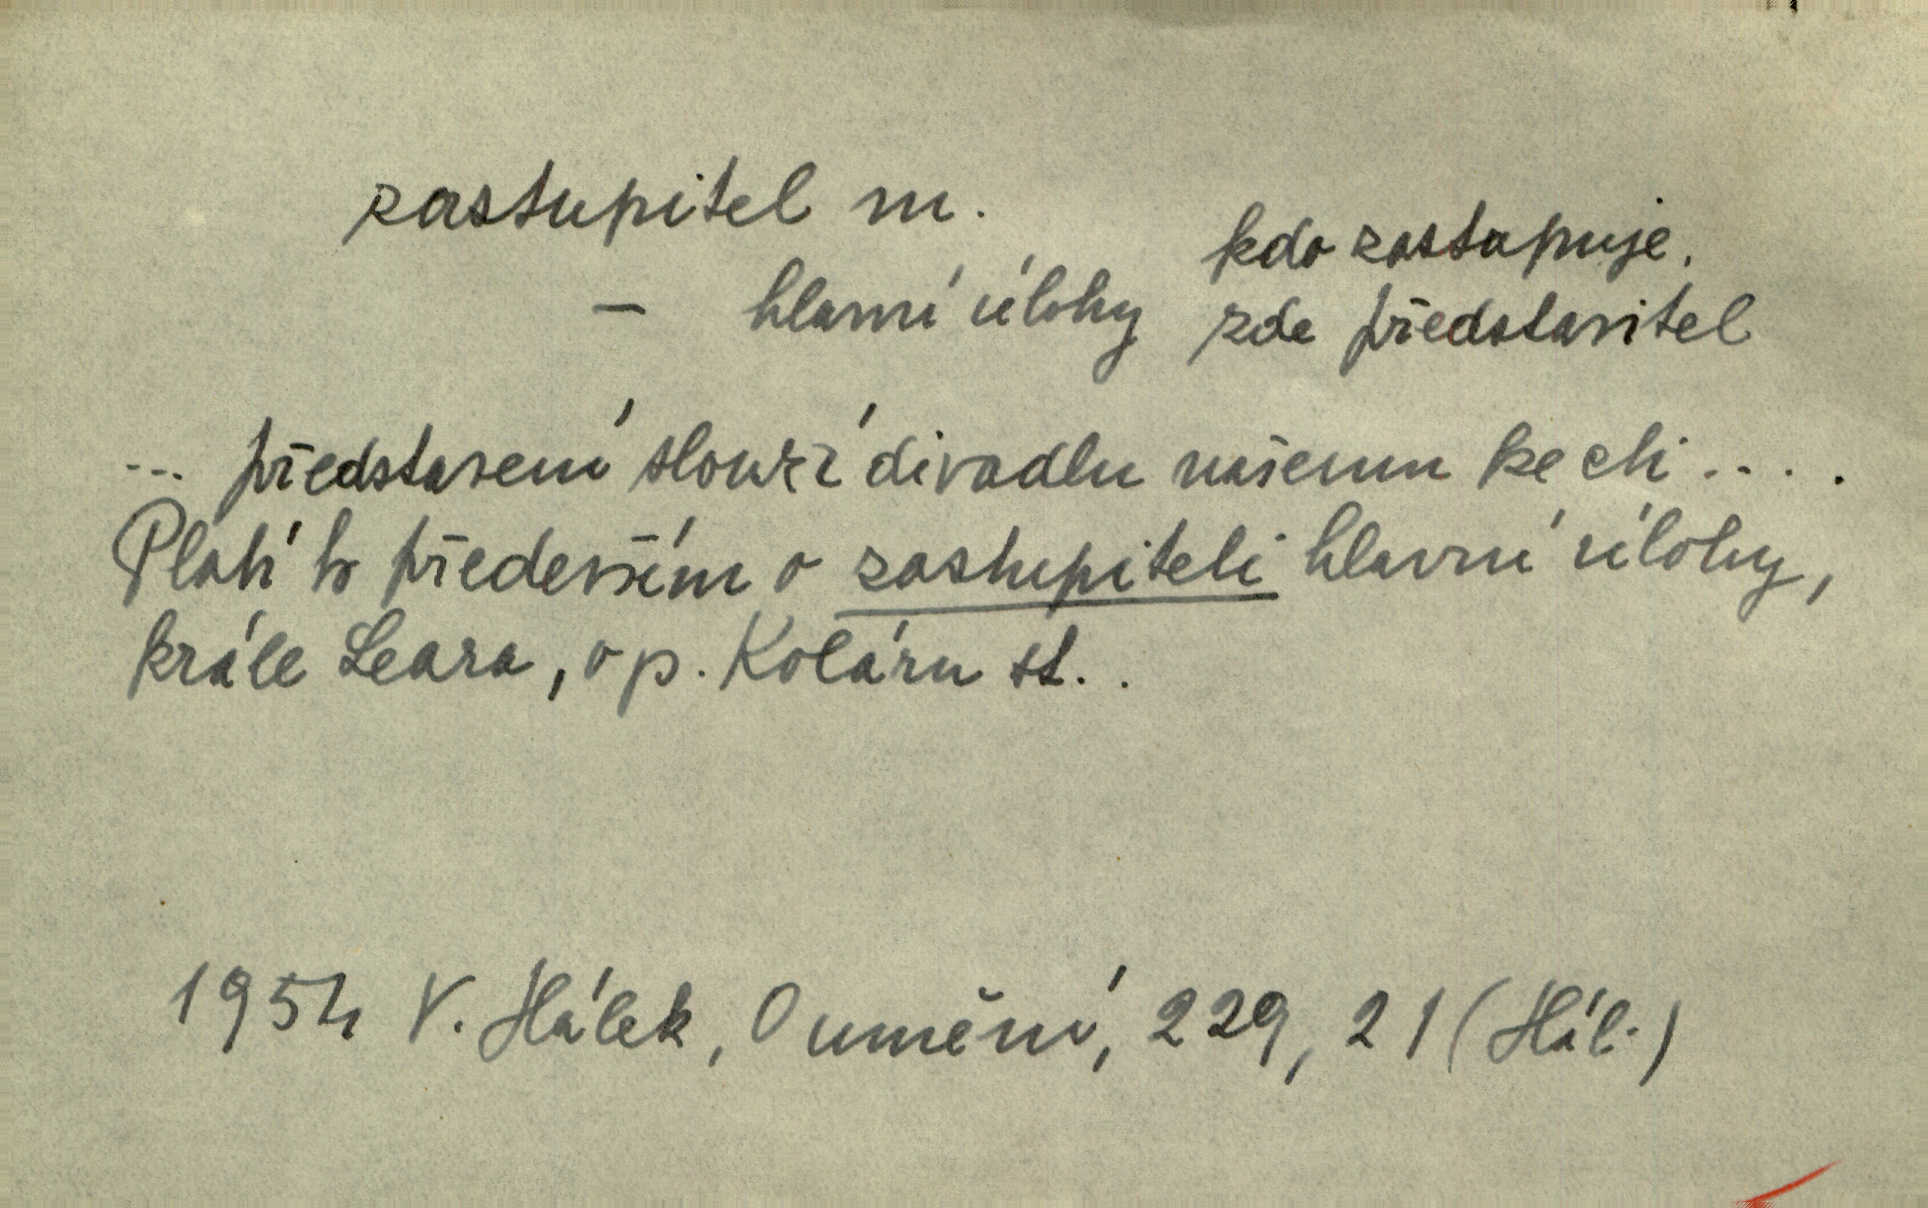 zastupitel m.
kdo zastupuje,
– hlavní úlohy zde představitel
... představení slouží divadlu našemu ke cti ....
Platí to především o zastupiteli hlavní úlohy,
krále Leara, o p. Koláru st..
1954 V. Hálek, O umění, 229, 21 (Hál.)